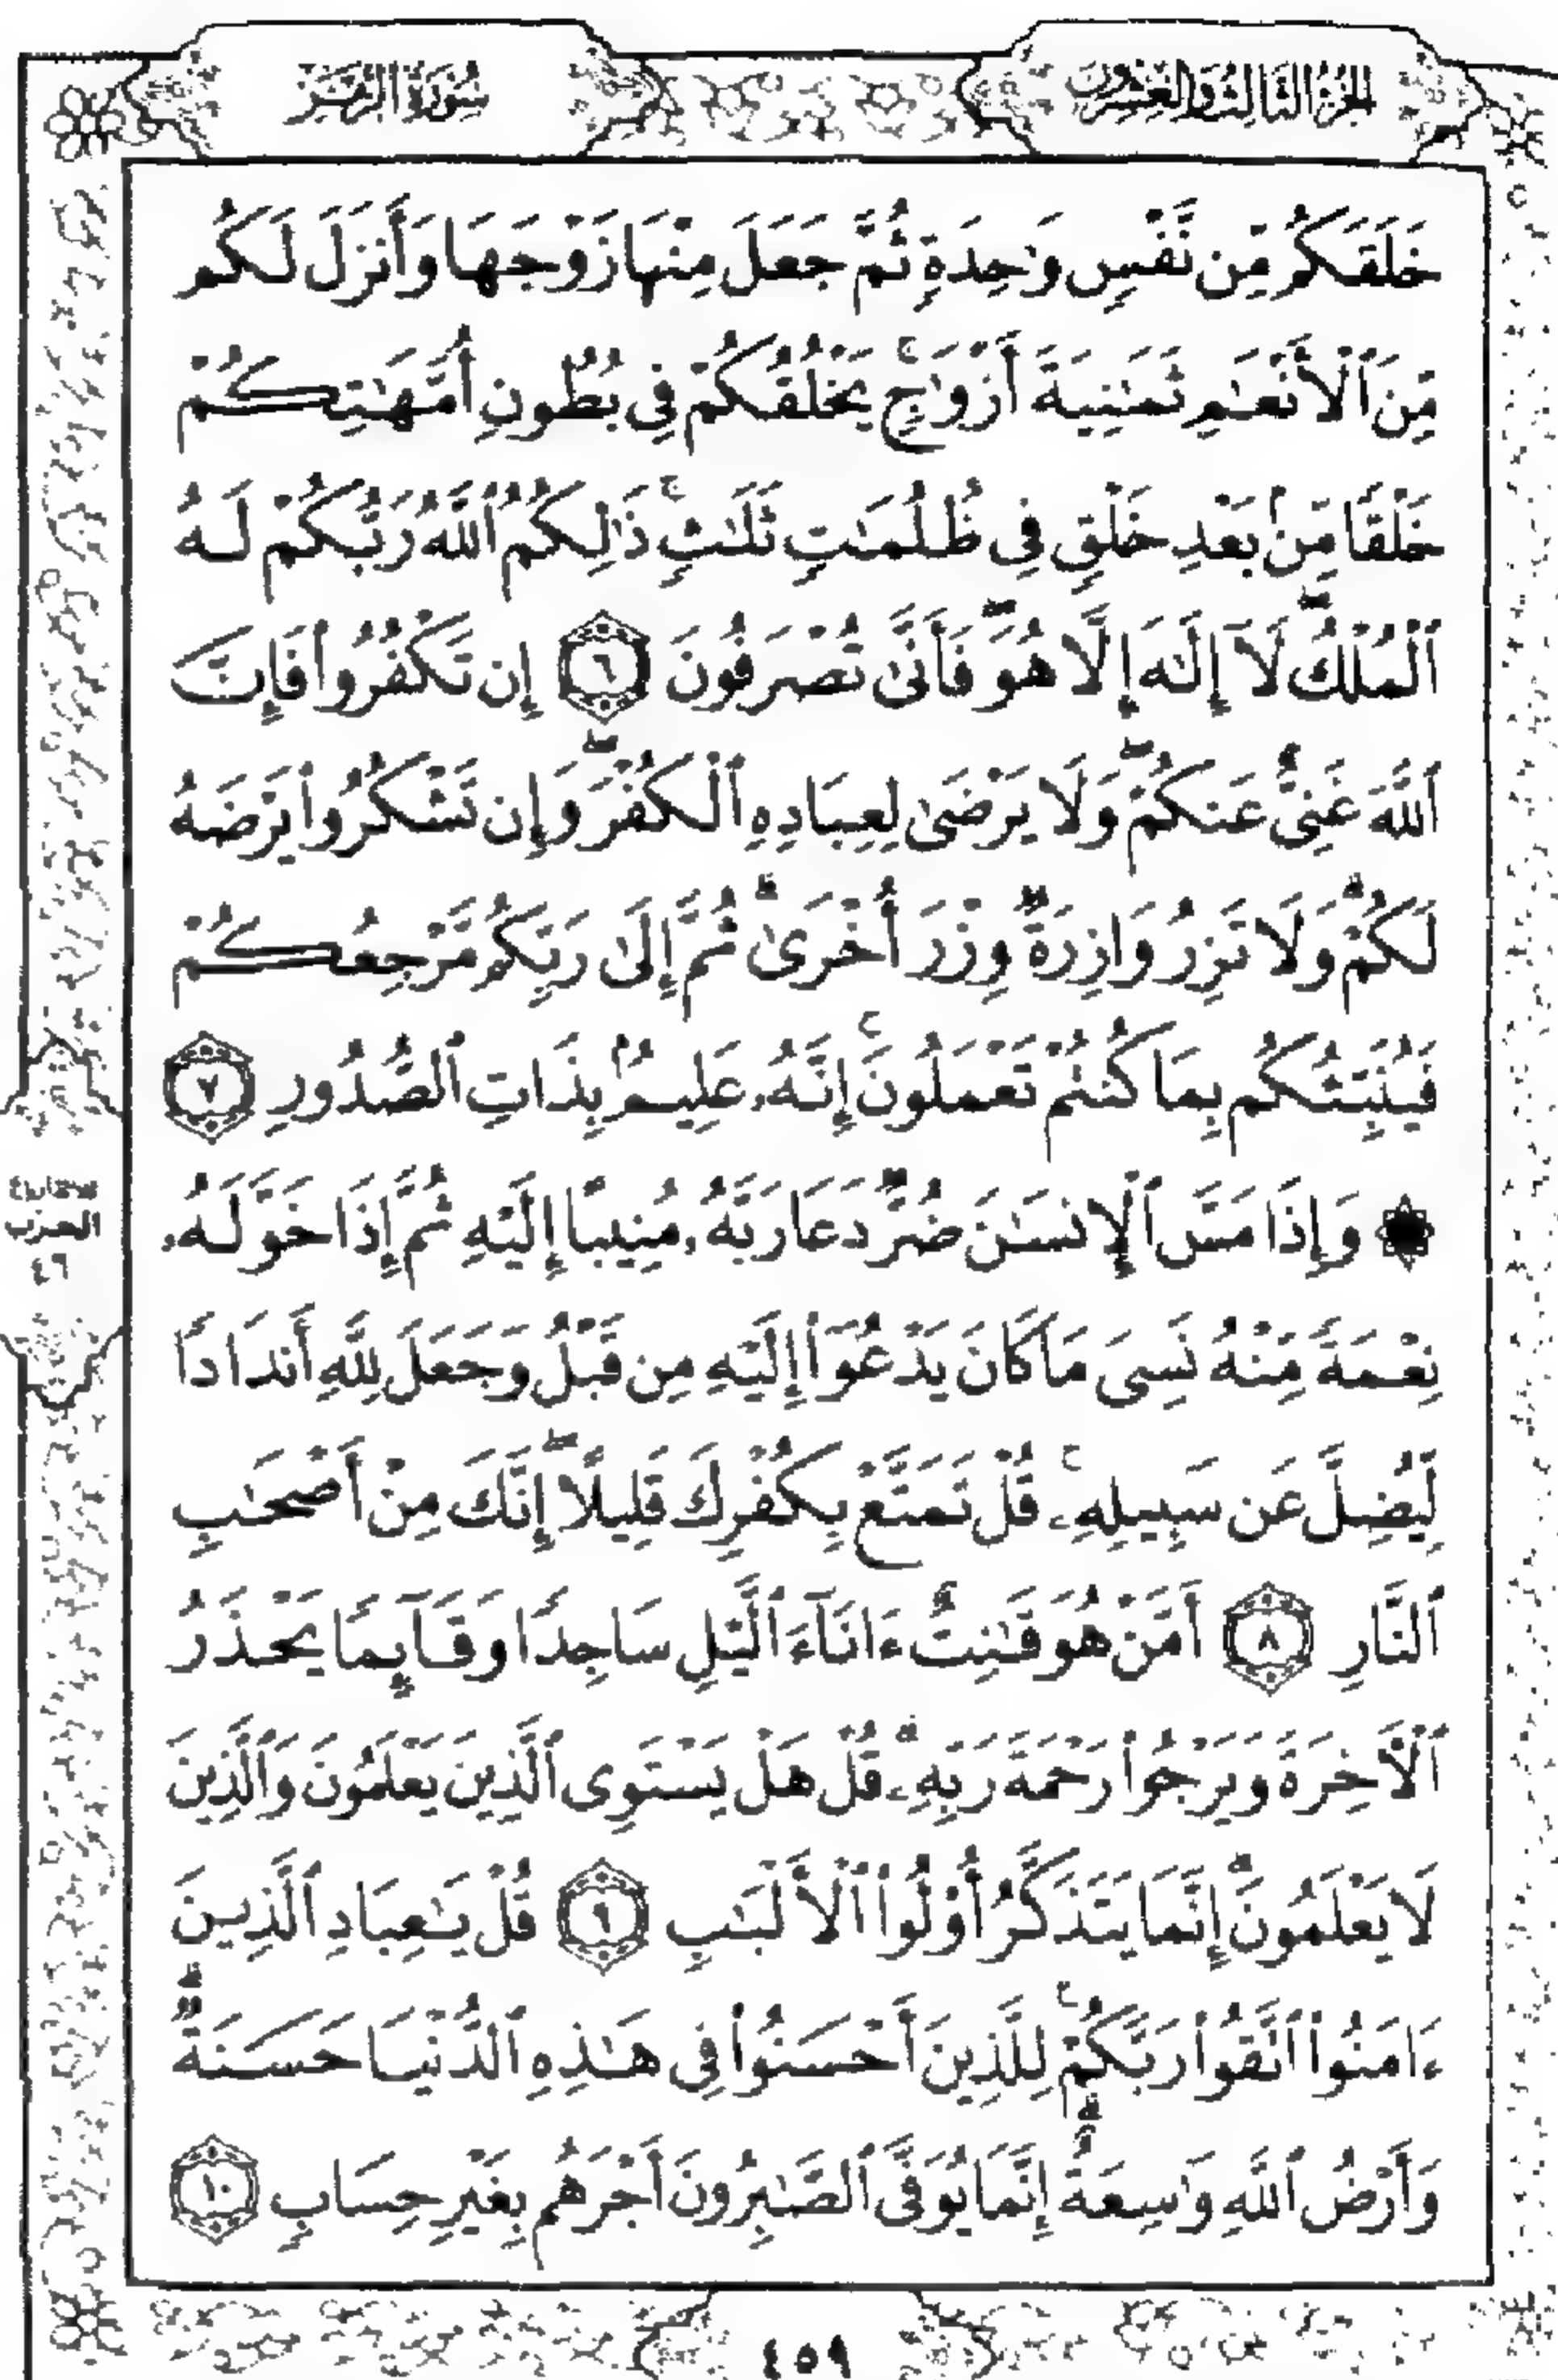 الجزء الثالث والعشرون
سورة الزمر
خَلَقَكُم مِّن نَّفْسٍ وَٰحِدَةٍ ثُمَّ جَعَلَ مِنْهَا زَوْجَهَا وَأَنزَلَ لَكُم
مِّنَ ٱلْأَنْعَٰمِ ثَمَٰنِيَةَ أَزْوَٰجٍۚ يَخْلُقُكُمْ فِى بُطُونِ أُمَّهَٰتِكُمْ
خَلْقًا مِّنۢ بَعْدِ خَلْقٍ فِى ظُلُمَٰتٍ ثَلَٰثٍۚ ذَٰلِكُمُ ٱللَّهُ رَبُّكُمْ لَهُ
ٱلْمُلْكُۖ لَآ إِلَٰهَ إِلَّا هُوَۖ فَأَنَّىٰ تُصْرَفُونَ ٦ إِن تَكْفُرُوا۟ فَإِنَّ
ٱللَّهَ غَنِىٌّ عَنكُمْۖ وَلَا يَرْضَىٰ لِعِبَادِهِ ٱلْكُفْرَۖ وَإِن تَشْكُرُوا۟ يَرْضَهُ
لَكُمْۗ وَلَا تَزِرُ وَازِرَةٌ وِزْرَ أُخْرَىٰۗ ثُمَّ إِلَىٰ رَبِّكُم مَّرْجِعُكُمْ
فَيُنَبِّئُكُم بِمَا كُنتُمْ تَعْمَلُونَۚ إِنَّهُۥ عَلِيمٌۢ بِذَاتِ ٱلصُّدُورِ ٧
۞ وَإِذَا مَسَّ ٱلْإِنسَٰنَ ضُرٌّ دَعَا رَبَّهُۥ مُنِيبًا إِلَيْهِ ثُمَّ إِذَا خَوَّلَهُۥ
نِعْمَةً مِّنْهُ نَسِىَ مَا كَانَ يَدْعُوٓا۟ إِلَيْهِ مِن قَبْلُ وَجَعَلَ لِلَّهِ أَندَادًا
لِّيُضِلَّ عَن سَبِيلِهِۦۚ قُلْ تَمَتَّعْ بِكُفْرِكَ قَلِيلًاۖ إِنَّكَ مِنْ أَصْحَٰبِ
ٱلنَّارِ ٨ أَمَّنْ هُوَ قَٰنِتٌ ءَانَآءَ ٱلَّيْلِ سَاجِدًا وَقَآئِمًا يَحْذَرُ
ٱلْءَاخِرَةَ وَيَرْجُوا۟ رَحْمَةَ رَبِّهِۦۗ قُلْ هَلْ يَسْتَوِى ٱلَّذِينَ يَعْلَمُونَ وَٱلَّذِينَ
لَا يَعْلَمُونَۗ إِنَّمَا يَتَذَكَّرُ أُو۟لُوا۟ ٱلْأَلْبَٰبِ ٩ قُلْ يَٰعِبَادِ ٱلَّذِينَ
ءَامَنُوا۟ ٱتَّقُوا۟ رَبَّكُمْۚ لِلَّذِينَ أَحْسَنُوا۟ فِى هَٰذِهِ ٱلدُّنْيَا حَسَنَةٌۗ
وَأَرْضُ ٱللَّهِ وَٰسِعَةٌۗ إِنَّمَا يُوَفَّى ٱلصَّٰبِرُونَ أَجْرَهُم بِغَيْرِ حِسَابٍ ١٠
الحزب
٤٦
٤٥٩